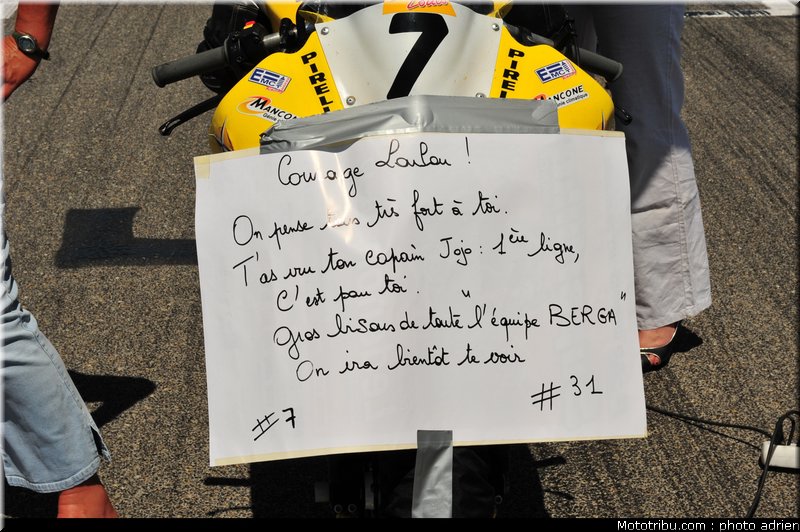 7
PIRELLI
PIRELLI
EMC
EMC
MANCONE
MANCONE
Génie climatique
Courage LouLou !
On pense tous très fort à toi.
T'as vu ton copain Jojo : 1ère ligne,
C'est pour toi.
Gros bisous de toute l'équipe "BERGA"
On ira bientôt te voir
#7
#31
Mototribu.com : photo adrien